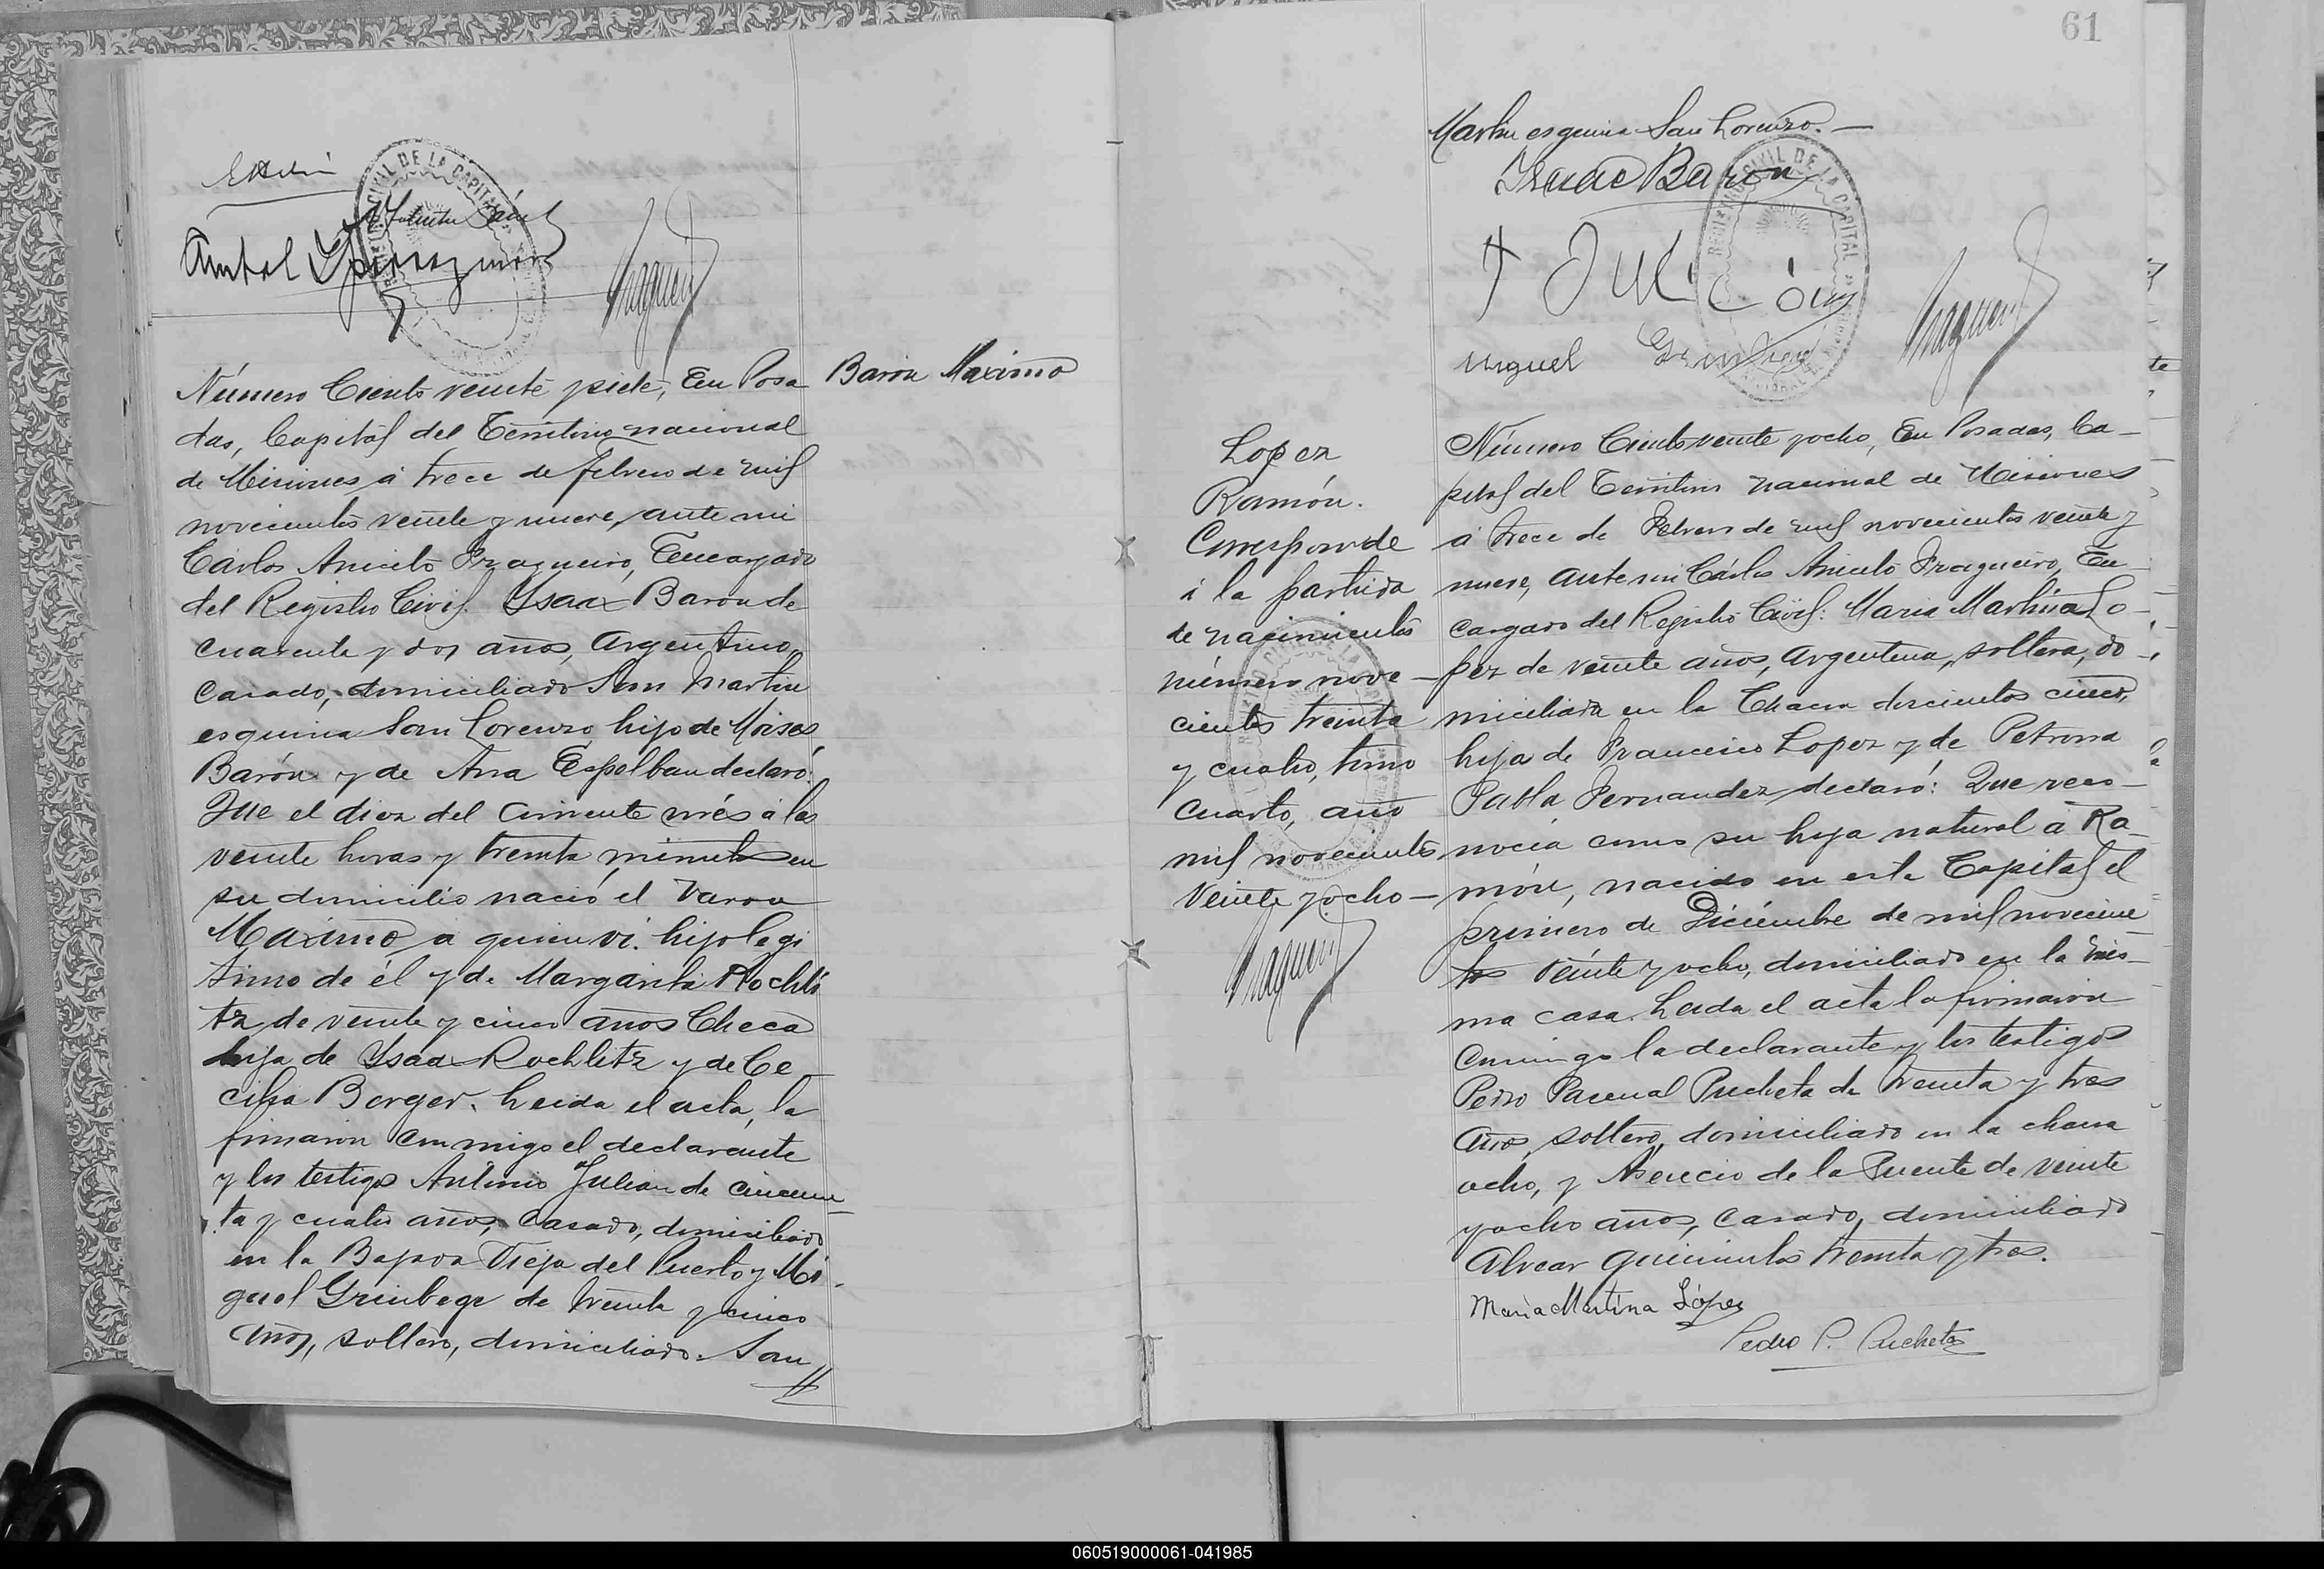 Número Ciento veinte y siete, En Posa
das, Capital del Territorio nacional
de Misiones, á trece de febrero de mil
novecientos veinte y nueve, ante mi
Cárlos Aniceto Fragueiro, Encargado
del Registro Civil. Ysaax Baron de
cuarenta y dos años, argentino,
casado, domiciliado San Martin
esquina San Lorenzo, hijo de Moises
Barón y de Ana Espelban declaró:
Que el diez del corriente més á las
veinte horas y treinta minutos en
su domicilio nació el varon
Maximo a quien vi. hijo legi
timo de él y de Margarita Rochli
tz, de veinte y cinco años Checa
hija de Ysaax Rochlitz y de Ce
cilia Berger. Leida el acta, la
firmaron conmigo el declarante
y los testigos Antonio Julian de cincuen
ta y cuatro años, casado, domiciliado
en la Bajada Vieja del Puerto y Mi
guel Grinbege de treinta y cinco
años, soltero, domiciliado San
Baron Maximo
61
Martin esquina San Lorenzo.—
Isaac Baron
Miguel
Lopez
Ramón.
Corresponde
á la partida
de nacimientos
número nove
cientos treinta
y cuatro, tomo
cuarto, año
mil novecientos
veinte y ocho—
Número Ciento veinte y ocho, En Posadas, Ca—
pital del Territorio nacional de Misiones
á trece de Febrero de mil novecientos veinte y
nueve, ante mi Cárlos Aniceto Fragueiro, En
cargado del Registro Civil: Maria Martina Lo—
pez de veinte años, argentina, soltera, do—
miciliada en la Chacra doscientos cinco,
hija de Francisco Lopez y de Petrona
Pabla Fernandez, declaró: Que reco—
nocía como su hijo natural á Ra—
món, nacido en esta Capital el
primero de Diciembre de mil novecien
tos veinte y ocho, domiciliado en la mis—
ma casa. Leida el acta la firmaron
conmigo la declarante y los testigos
Pedro Pascual Pucheta de treinta y tres
años, soltero, domiciliado en la chacra
ocho, y Asencio de la Puente de veinte
y ocho años, casado, domiciliado
Alvear quinientos treinta y tres.
Maria Martina López
Pedro P. Pucheta
060519000061-041985